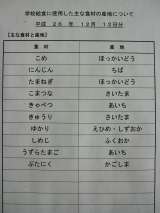 学校給食に使用した主な食材の産地について
平成26年12月12日分
【主な食材と産地】
食材 産地
こめ ほっかいどう
にんじん ちば
たまねぎ ほっかいどう
こまつな さいたま
きゃべつ あいち
きゅうり さいたま
ゆかり えひめ・しずおか
しめじ ふくおか
うずらたまご あいち
ぶたにく かごしま